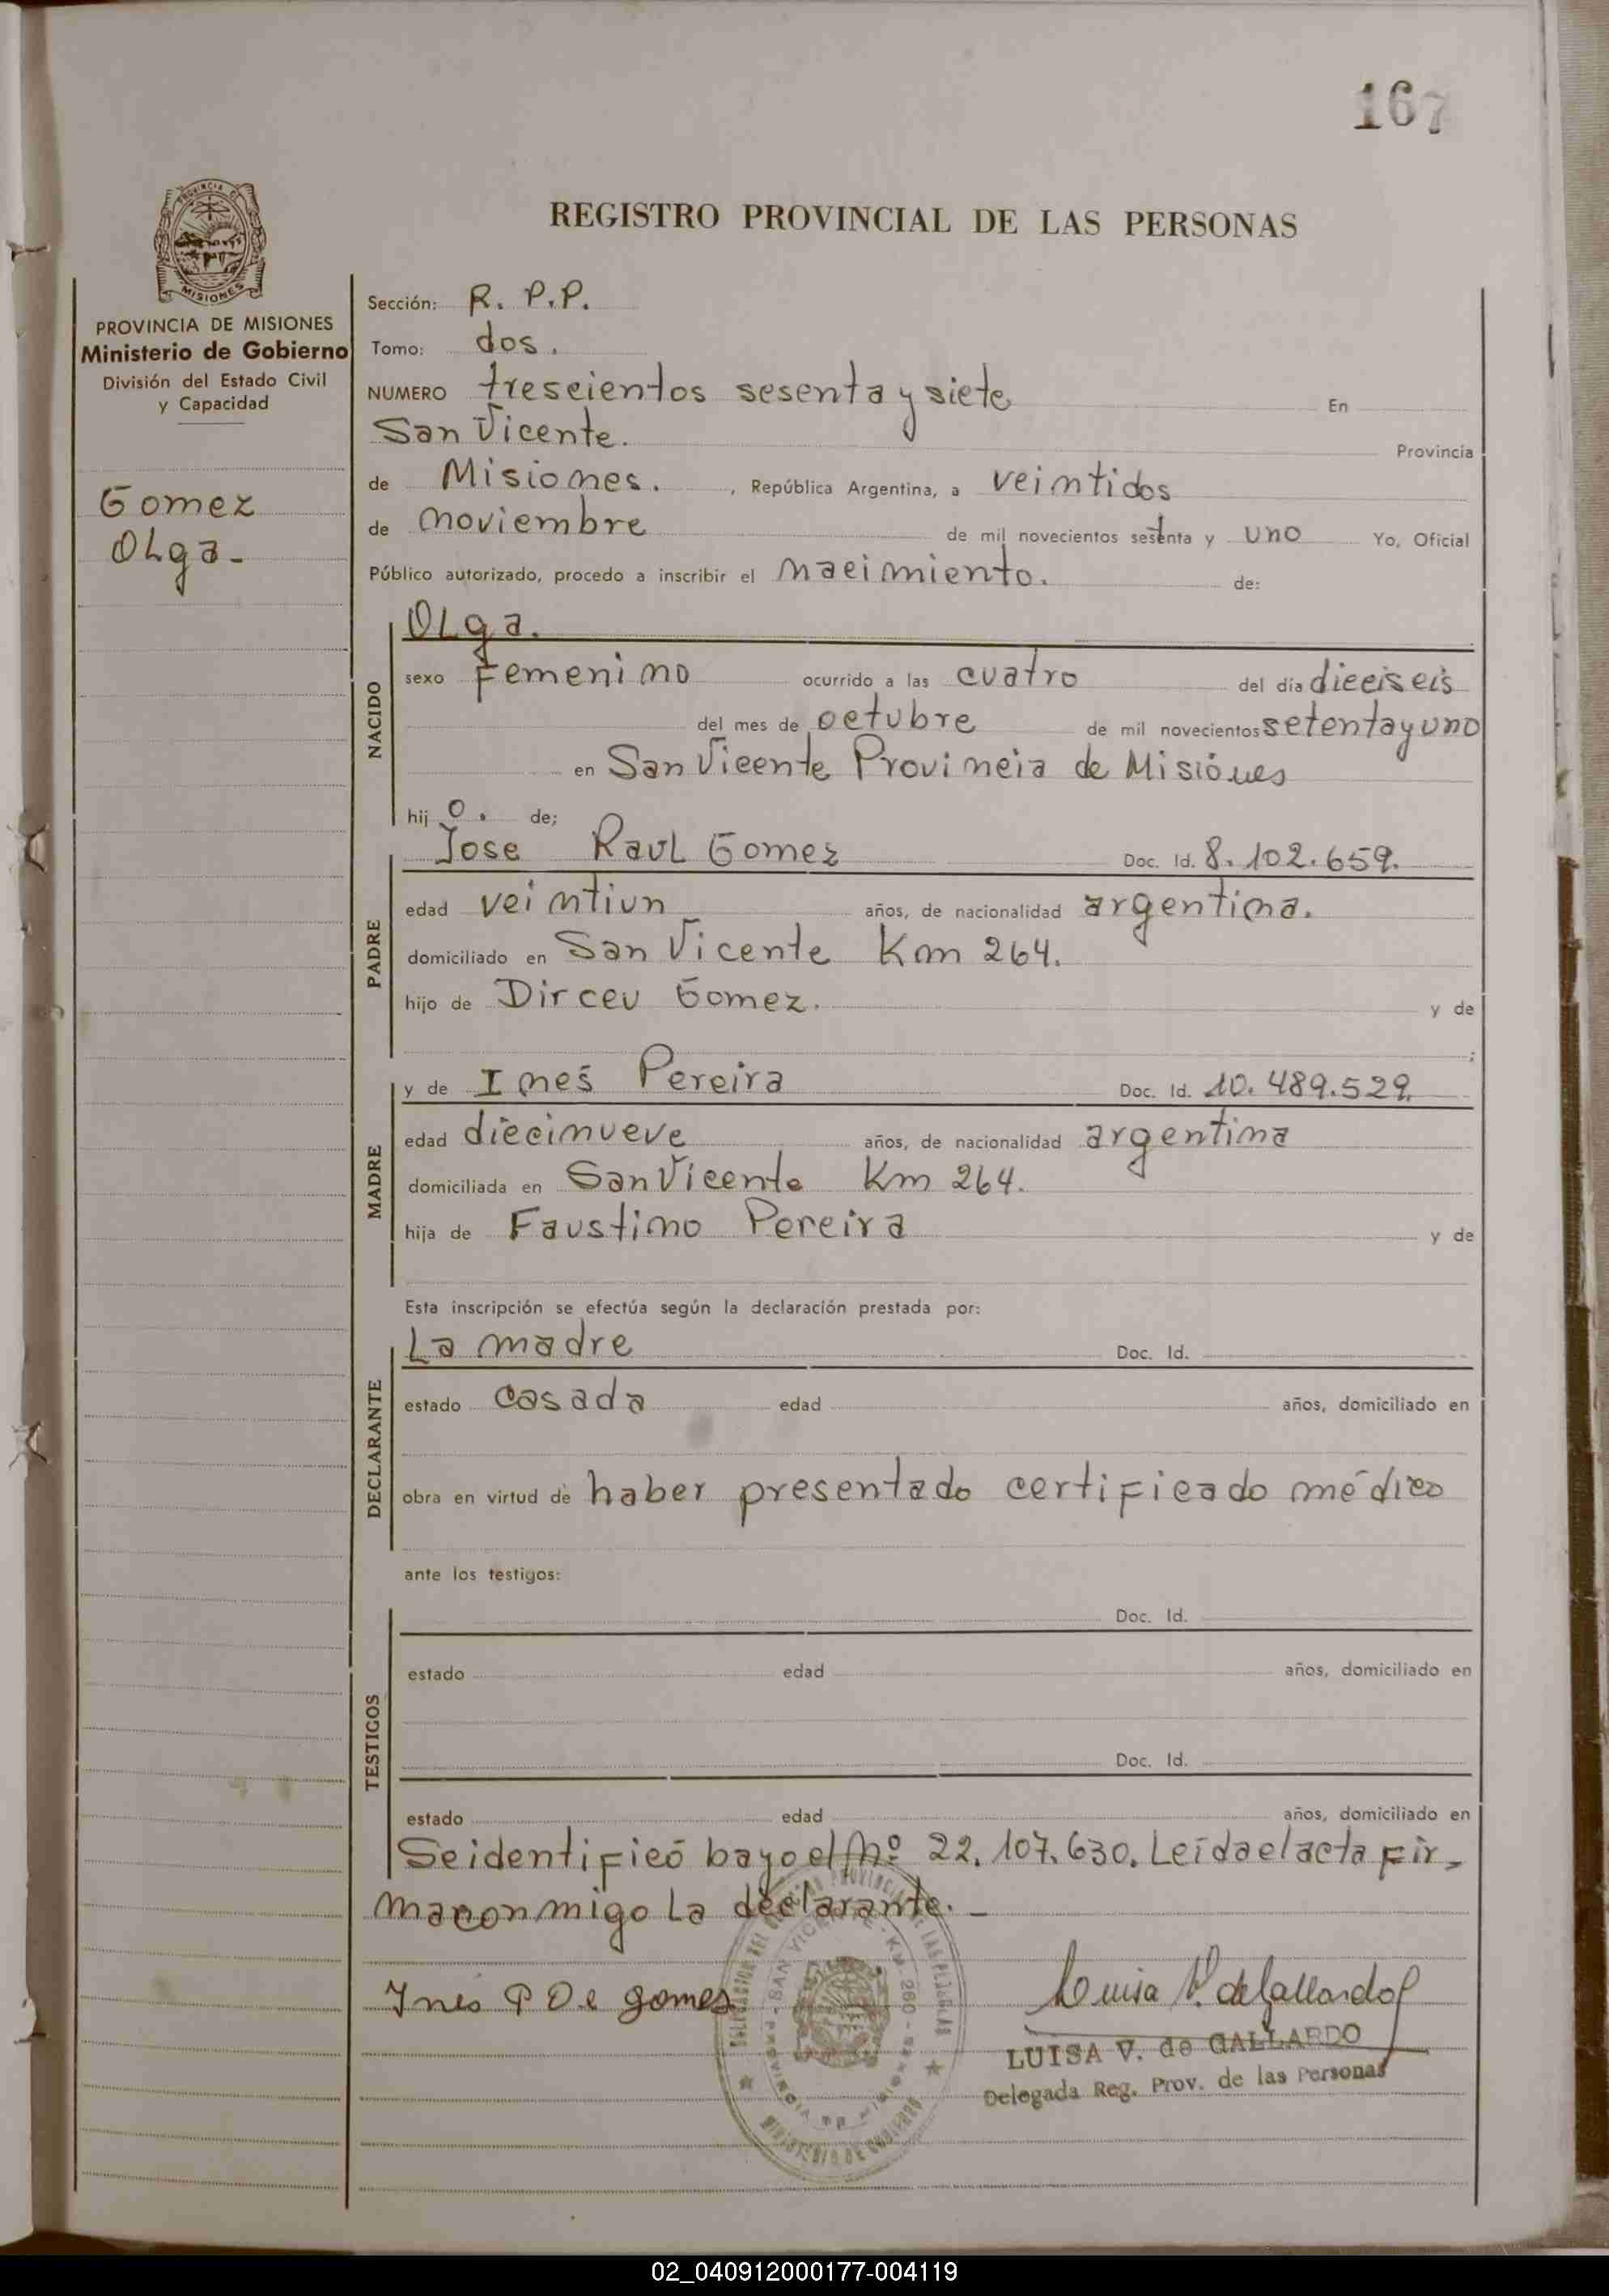 167
REGISTRO PROVINCIAL DE LAS PERSONAS
MISIONES
PROVINCIA DE MISIONES
Ministerio de Gobierno
División del Estado Civil
y Capacidad
Gomez
Olga-
Sección: R. P.P.
Tomo: dos.
NUMERO trescientos sesenta y siete En
San Vicente. Provincia
de Misiones. , República Argentina, a veintidos
de noviembre de mil novecientos setenta y uno Yo, Oficial
Público autorizado, procedo a inscribir el nacimiento. de:
NACIDO
Olga.
sexo Femenino ocurrido a las cuatro del día dieciseis
del mes de octubre de mil novecientos setenta y uno
en San Vicente Provincia de Misiones
hij o. de;
PADRE
Jose Raul Gomez Doc. Id. 8.102.659.
edad veintiun años, de nacionalidad argentina.
domiciliado en San Vicente Km 264.
hijo de Dirceu Gomez. y de
;
MADRE
y de Ines Pereira Doc. Id. 10.489.529.
edad diecinueve años, de nacionalidad argentina
domiciliada en San Vicente Km 264.
hija de Faustino Pereira y de
Esta inscripción se efectúa según la declaración prestada por:
DECLARANTE
La madre Doc. Id.
estado casada edad años, domiciliado en
obra en virtud de haber presentado certificado médico
ante los testigos:
TESTIGOS
Doc. Id.
estado edad años, domiciliado en
Doc. Id.
estado edad años, domiciliado en
Se identificó bajo el Nº 22.107.630. Leída el acta fir-
ma conmigo la declarante. -
Ines P De gomes
Luisa V. de Gallardo
LUISA V. de GALLARDO
Delegada Reg. Prov. de las Personas
02_040912000177-004119